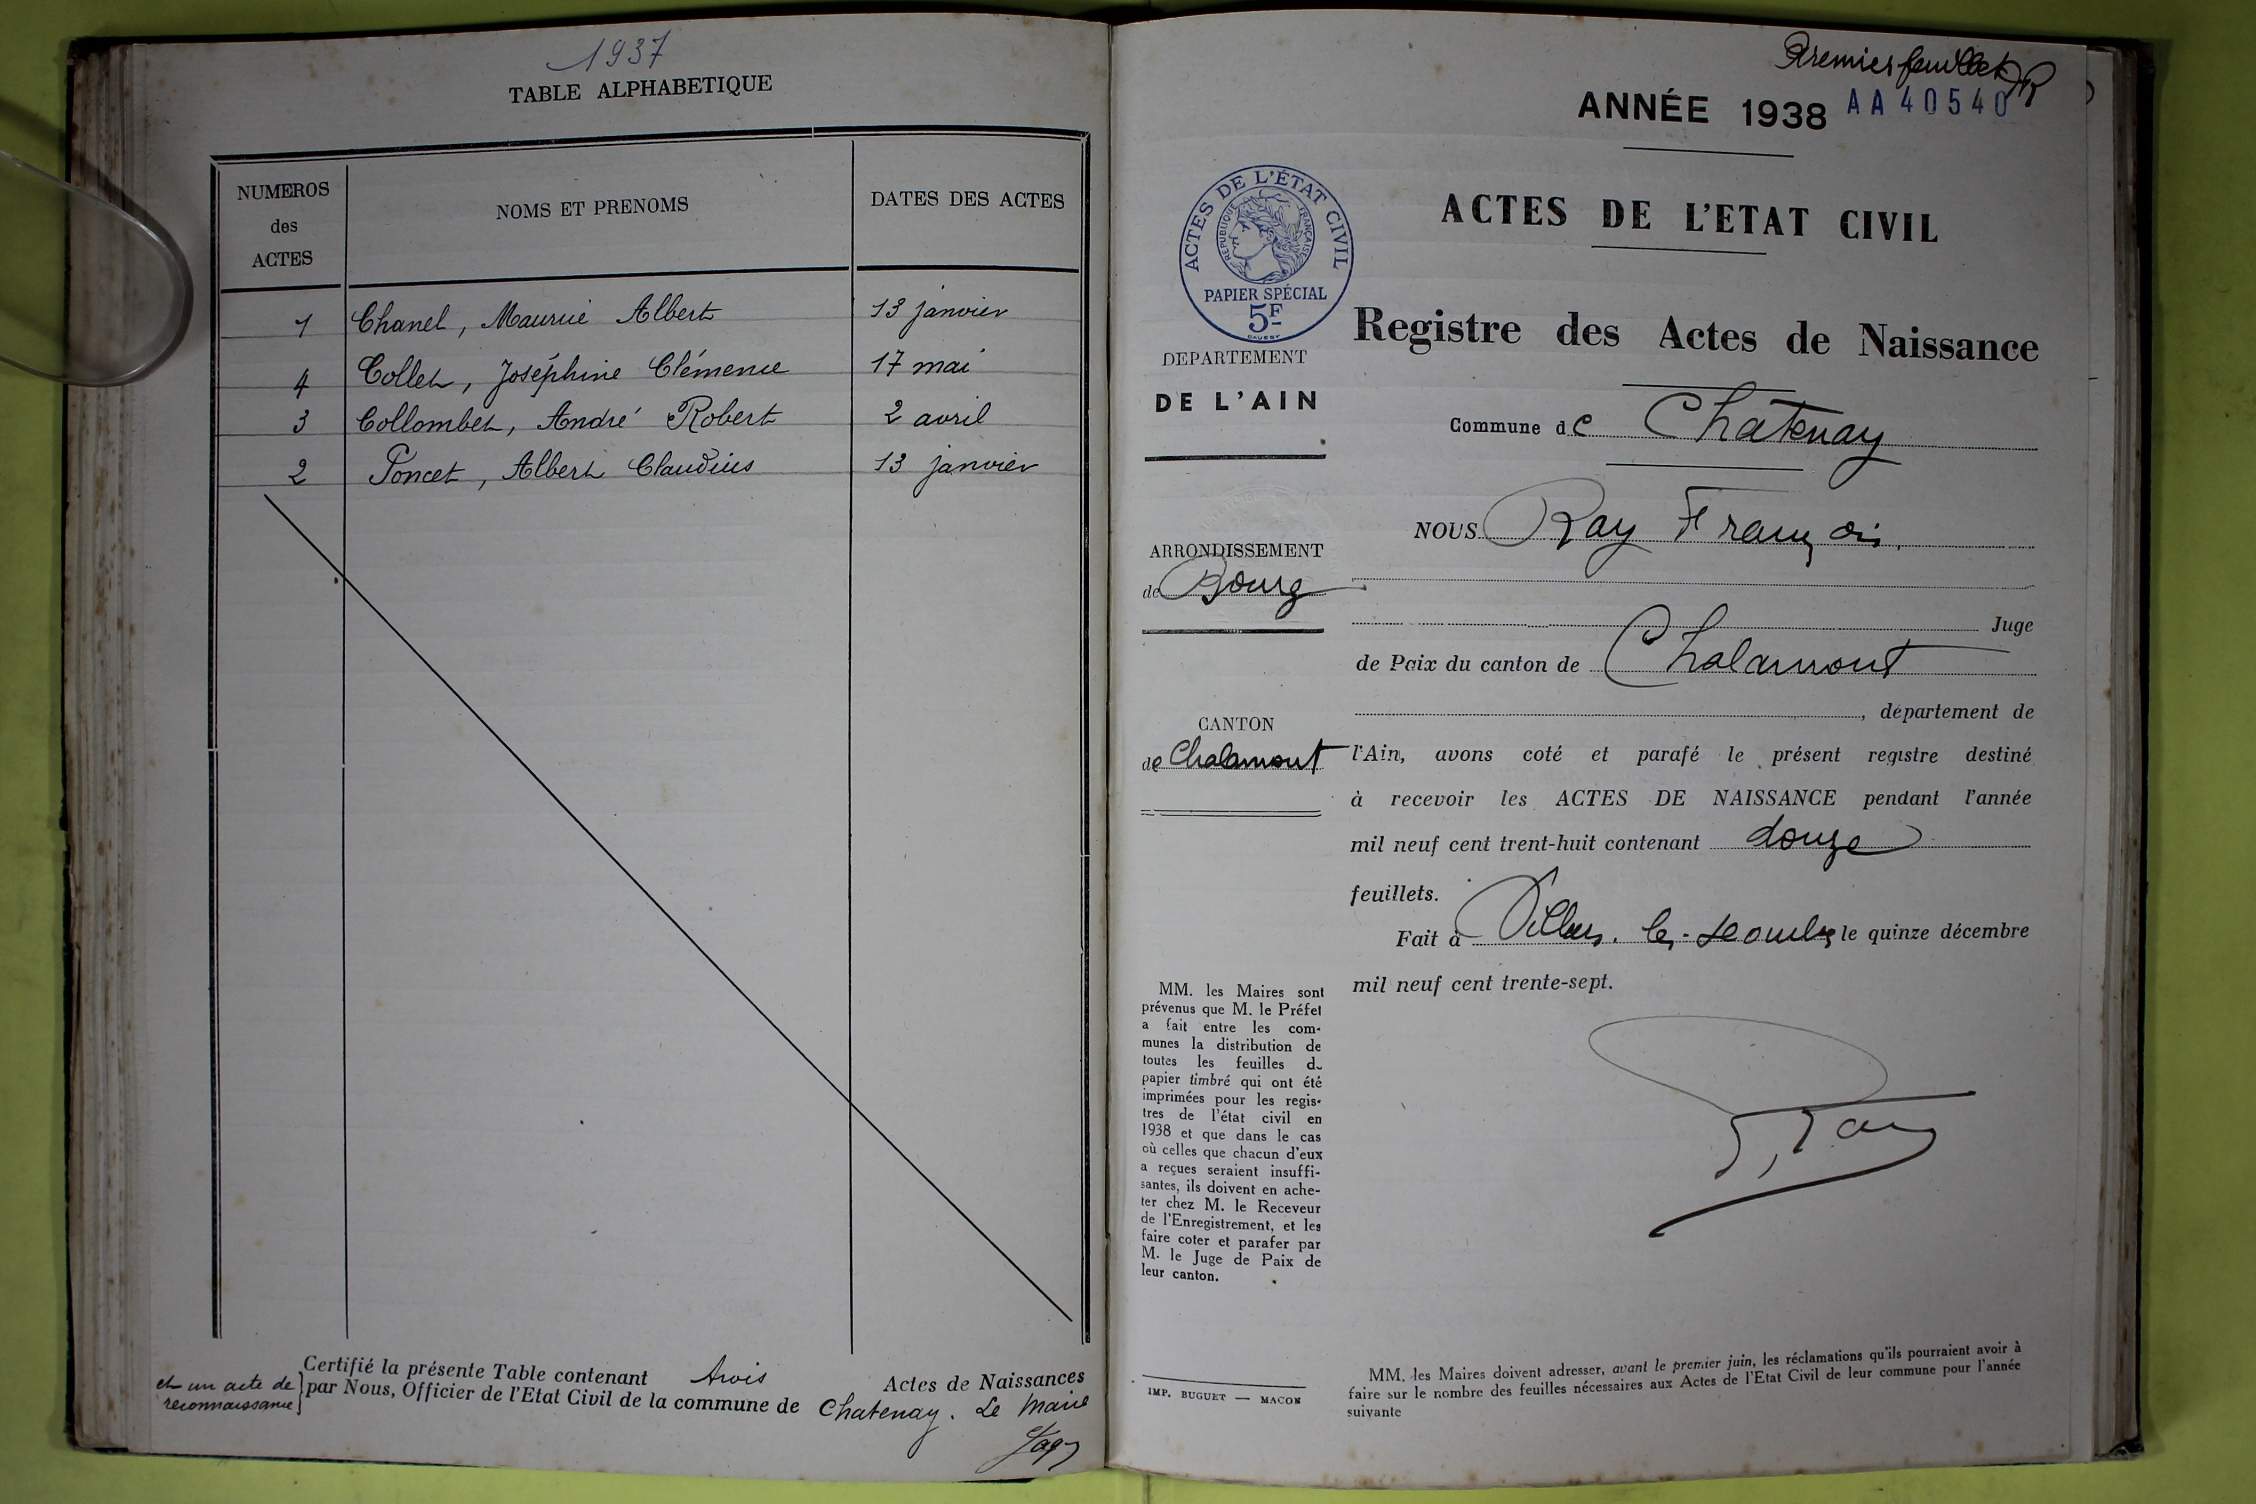 1937
TABLE ALPHABETIQUE
NUMEROS
des
ACTES
NOMS ET PRENOMS
DATES DES ACTES
1 Chanel, Maurice Albert 13 janvier
4 Collet, Joséphine Clémence 17 mai
3 Collombet, André Robert 2 avril
2 Poncet, Albert Claudius 13 janvier
Certifié la présente Table contenant trois Actes de Naissances
et un acte de
reconnaissance
par Nous, Officier de l'Etat Civil de la commune de Chatenay. Le Maire
Premier feuillet
ANNÉE 1938 AA 40540
ACTES DE L'ÉTAT CIVIL
REPUBLIQUE FRANÇAISE
PAPIER SPÉCIAL
5F
ACTES DE L'ETAT CIVIL
Registre des Actes de Naissance
DEPARTEMENT
DE L'AIN
Commune de Chatenay
ARRONDISSEMENT
de Bourg
CANTON
de Chalamont
NOUS Ray François
Juge
de Paix du canton de Chalamont
, département de
l'Ain, avons coté et parafé le présent registre destiné
à recevoir les ACTES DE NAISSANCE pendant l'année
mil neuf cent trent-huit contenant douze
feuillets.
Fait à Villars-les-Dombes le quinze décembre
mil neuf cent trente-sept.
F. Ray
MM. les Maires sont
prévenus que M. le Préfet
a fait entre les com-
munes la distribution de
toutes les feuilles de
papier timbré qui ont été
imprimées pour les regis-
tres de l'état civil en
1938 et que dans le cas
où celles que chacun d'eux
a reçues seraient insuffi-
santes, ils doivent en ache-
ter chez M. le Receveur
de l'Enregistrement, et les
faire coter et parafer par
M. le Juge de Paix de
leur canton.
IMP. BUGUET — MACON
MM. les Maires doivent adresser, avant le premier juin, les réclamations qu'ils pourraient avoir à
faire sur le nombre des feuilles nécessaires aux Actes de l'Etat Civil de leur commune pour l'année
suivante